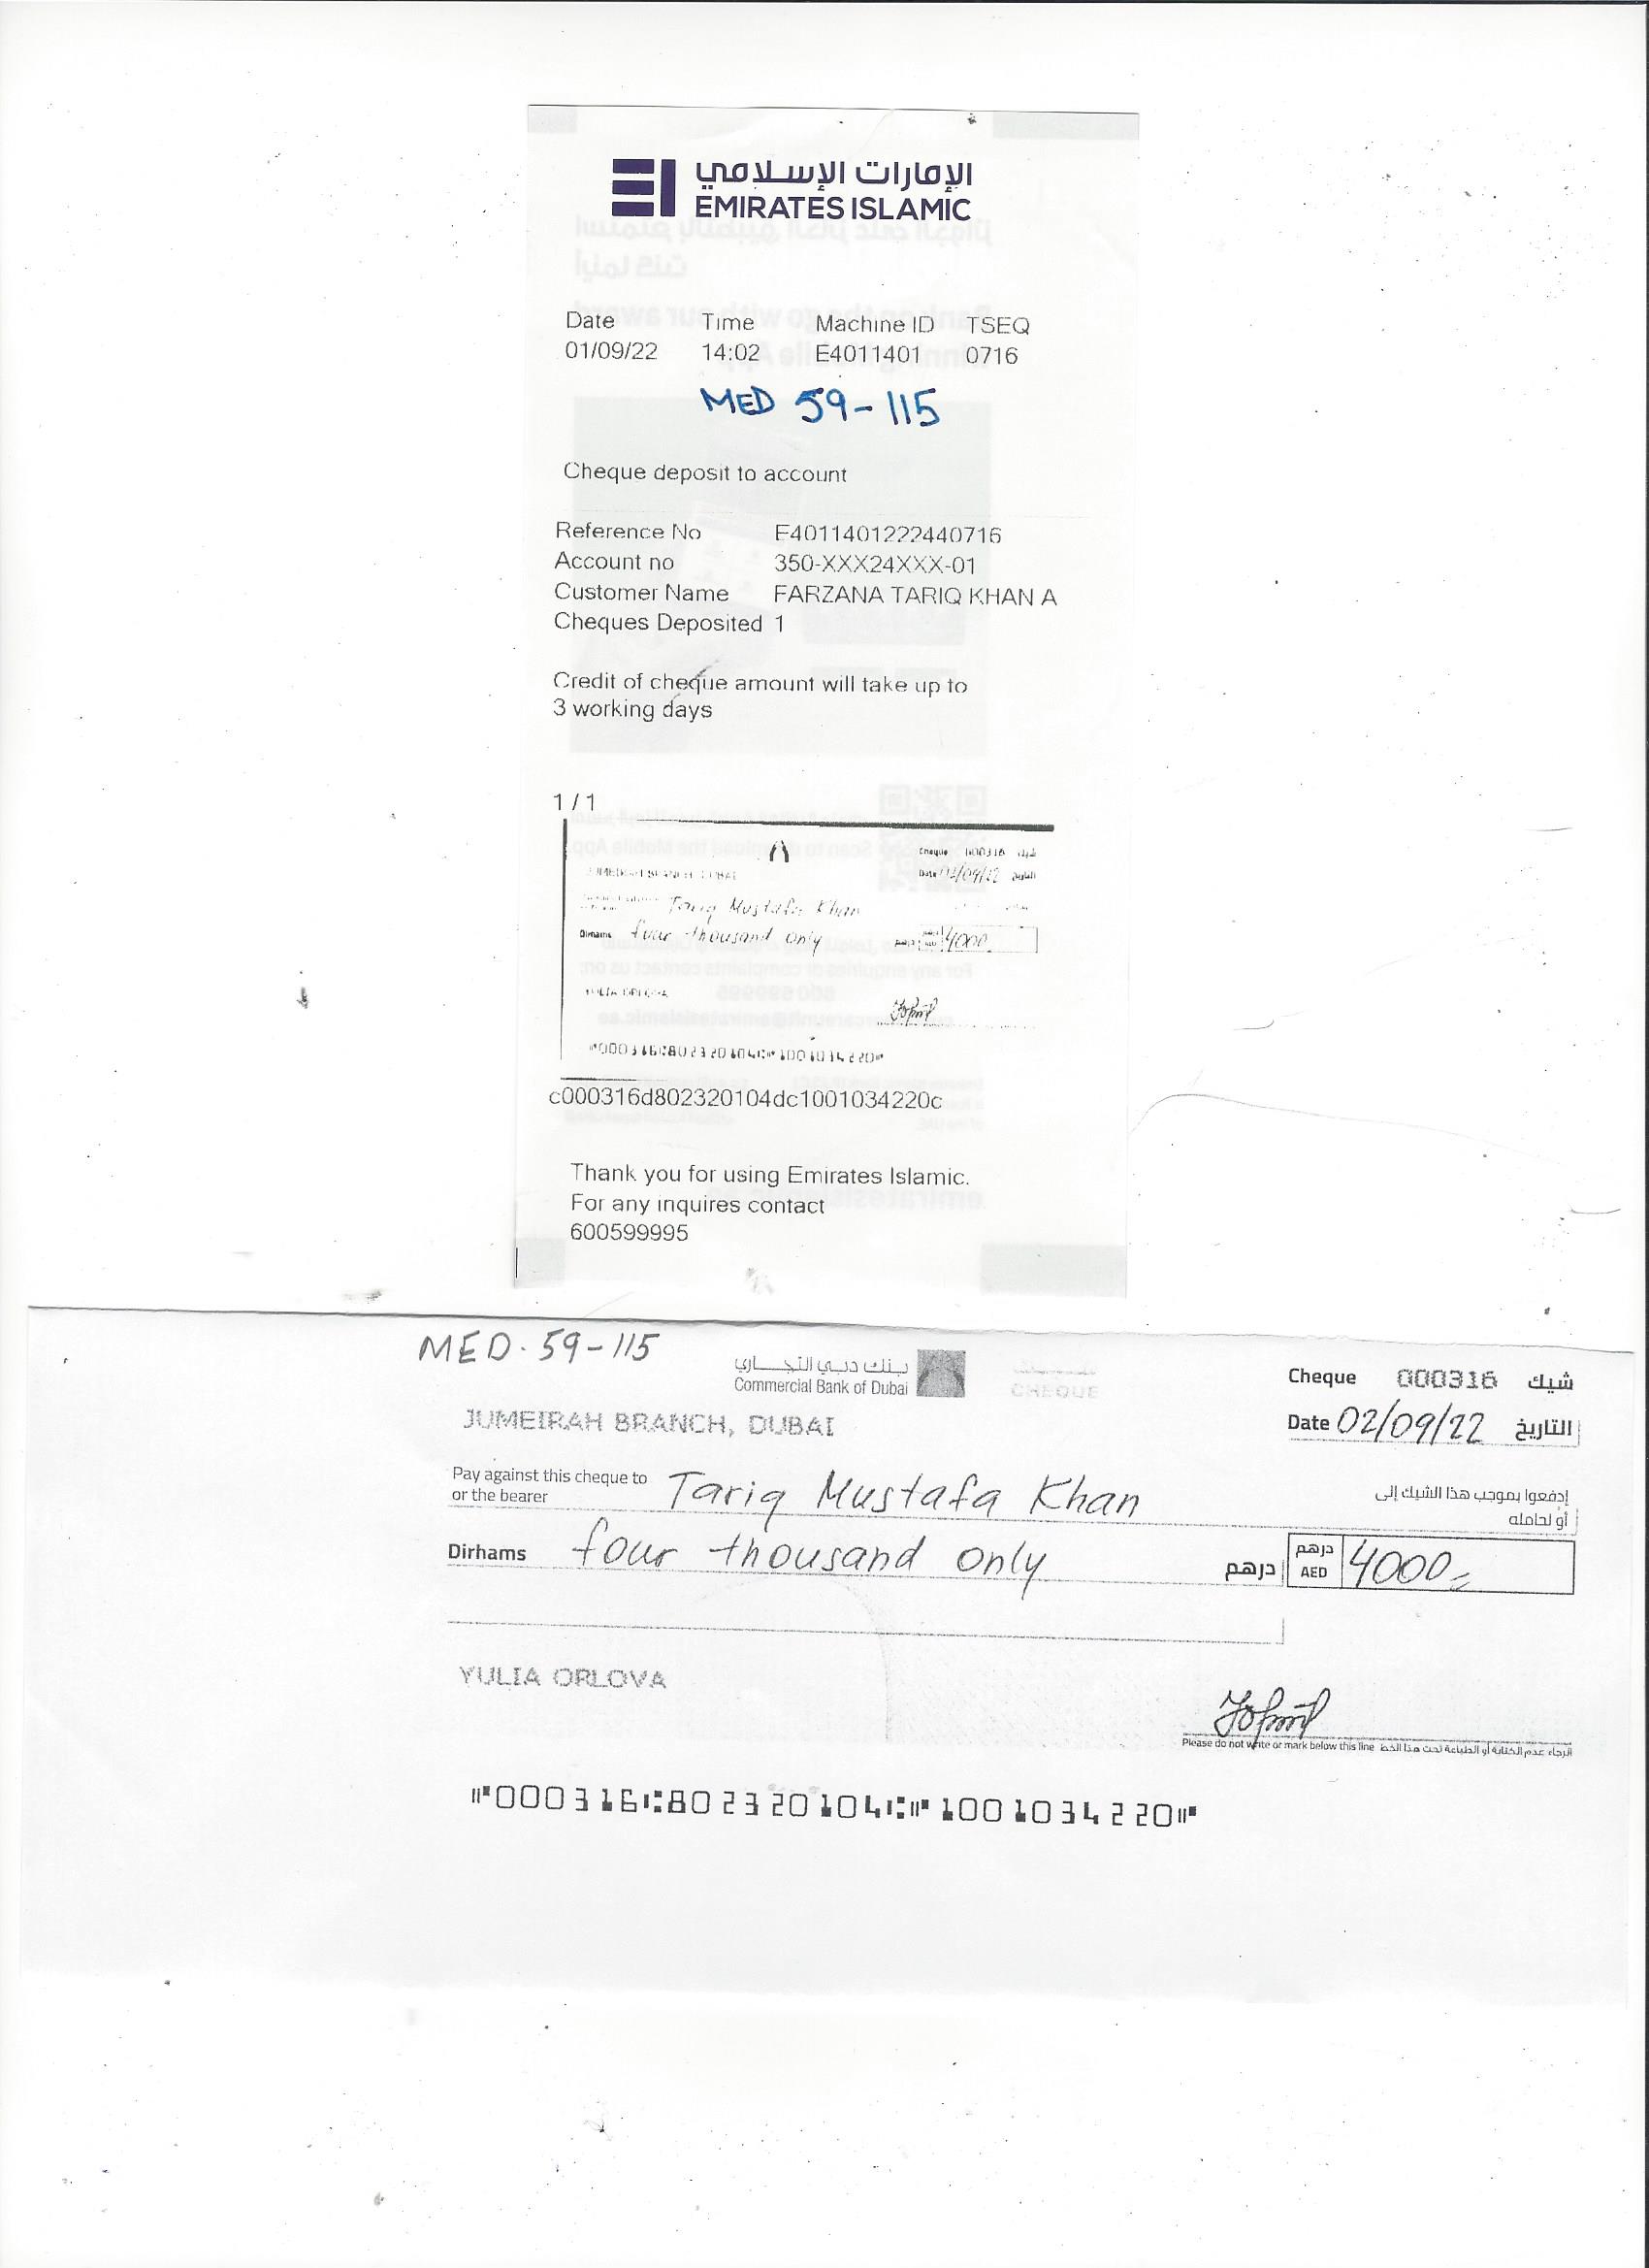 الإمارات الإسلامي
EMIRATES ISLAMIC
Date Time Machine ID TSEQ
01/09/22 14:02 E4011401 0716
MED 59-115
Cheque deposit to account
Reference No E4011401222440716
Account no 350-XXX24XXX-01
Customer Name FARZANA TARIQ KHAN A
Cheques Deposited 1
Credit of cheque amount will take up to
3 working days
1 / 1
Cheque 000316 شيك
JUMEIRAH BRANCH, DUBAI Date 02/09/22 التاريخ
Tariq Mustafa Khan
Dirhams four thousand only درهم درهم AED 4000
YULIA ORLOVA
⑈000316⑆802320104⑆⑈1001034220⑈
c000316d802320104dc1001034220c
Thank you for using Emirates Islamic.
For any inquires contact
600599995
MED. 59-115
بنك دبي التجاري
Commercial Bank of Dubai
CHEQUE
Cheque 000316 شيك
JUMEIRAH BRANCH, DUBAI
Date 02/09/22 التاريخ
Pay against this cheque to
or the bearer
Tariq Mustafa Khan
إدفعوا بموجب هذا الشيك إلى
أو لحامله
Dirhams four thousand only درهم
درهم
AED 4000
YULIA ORLOVA
Please do not write or mark below this line الرجاء عدم الكتابة أو الطباعة تحت هذا الخط
⑈000316⑆802320104⑆⑈1001034220⑈